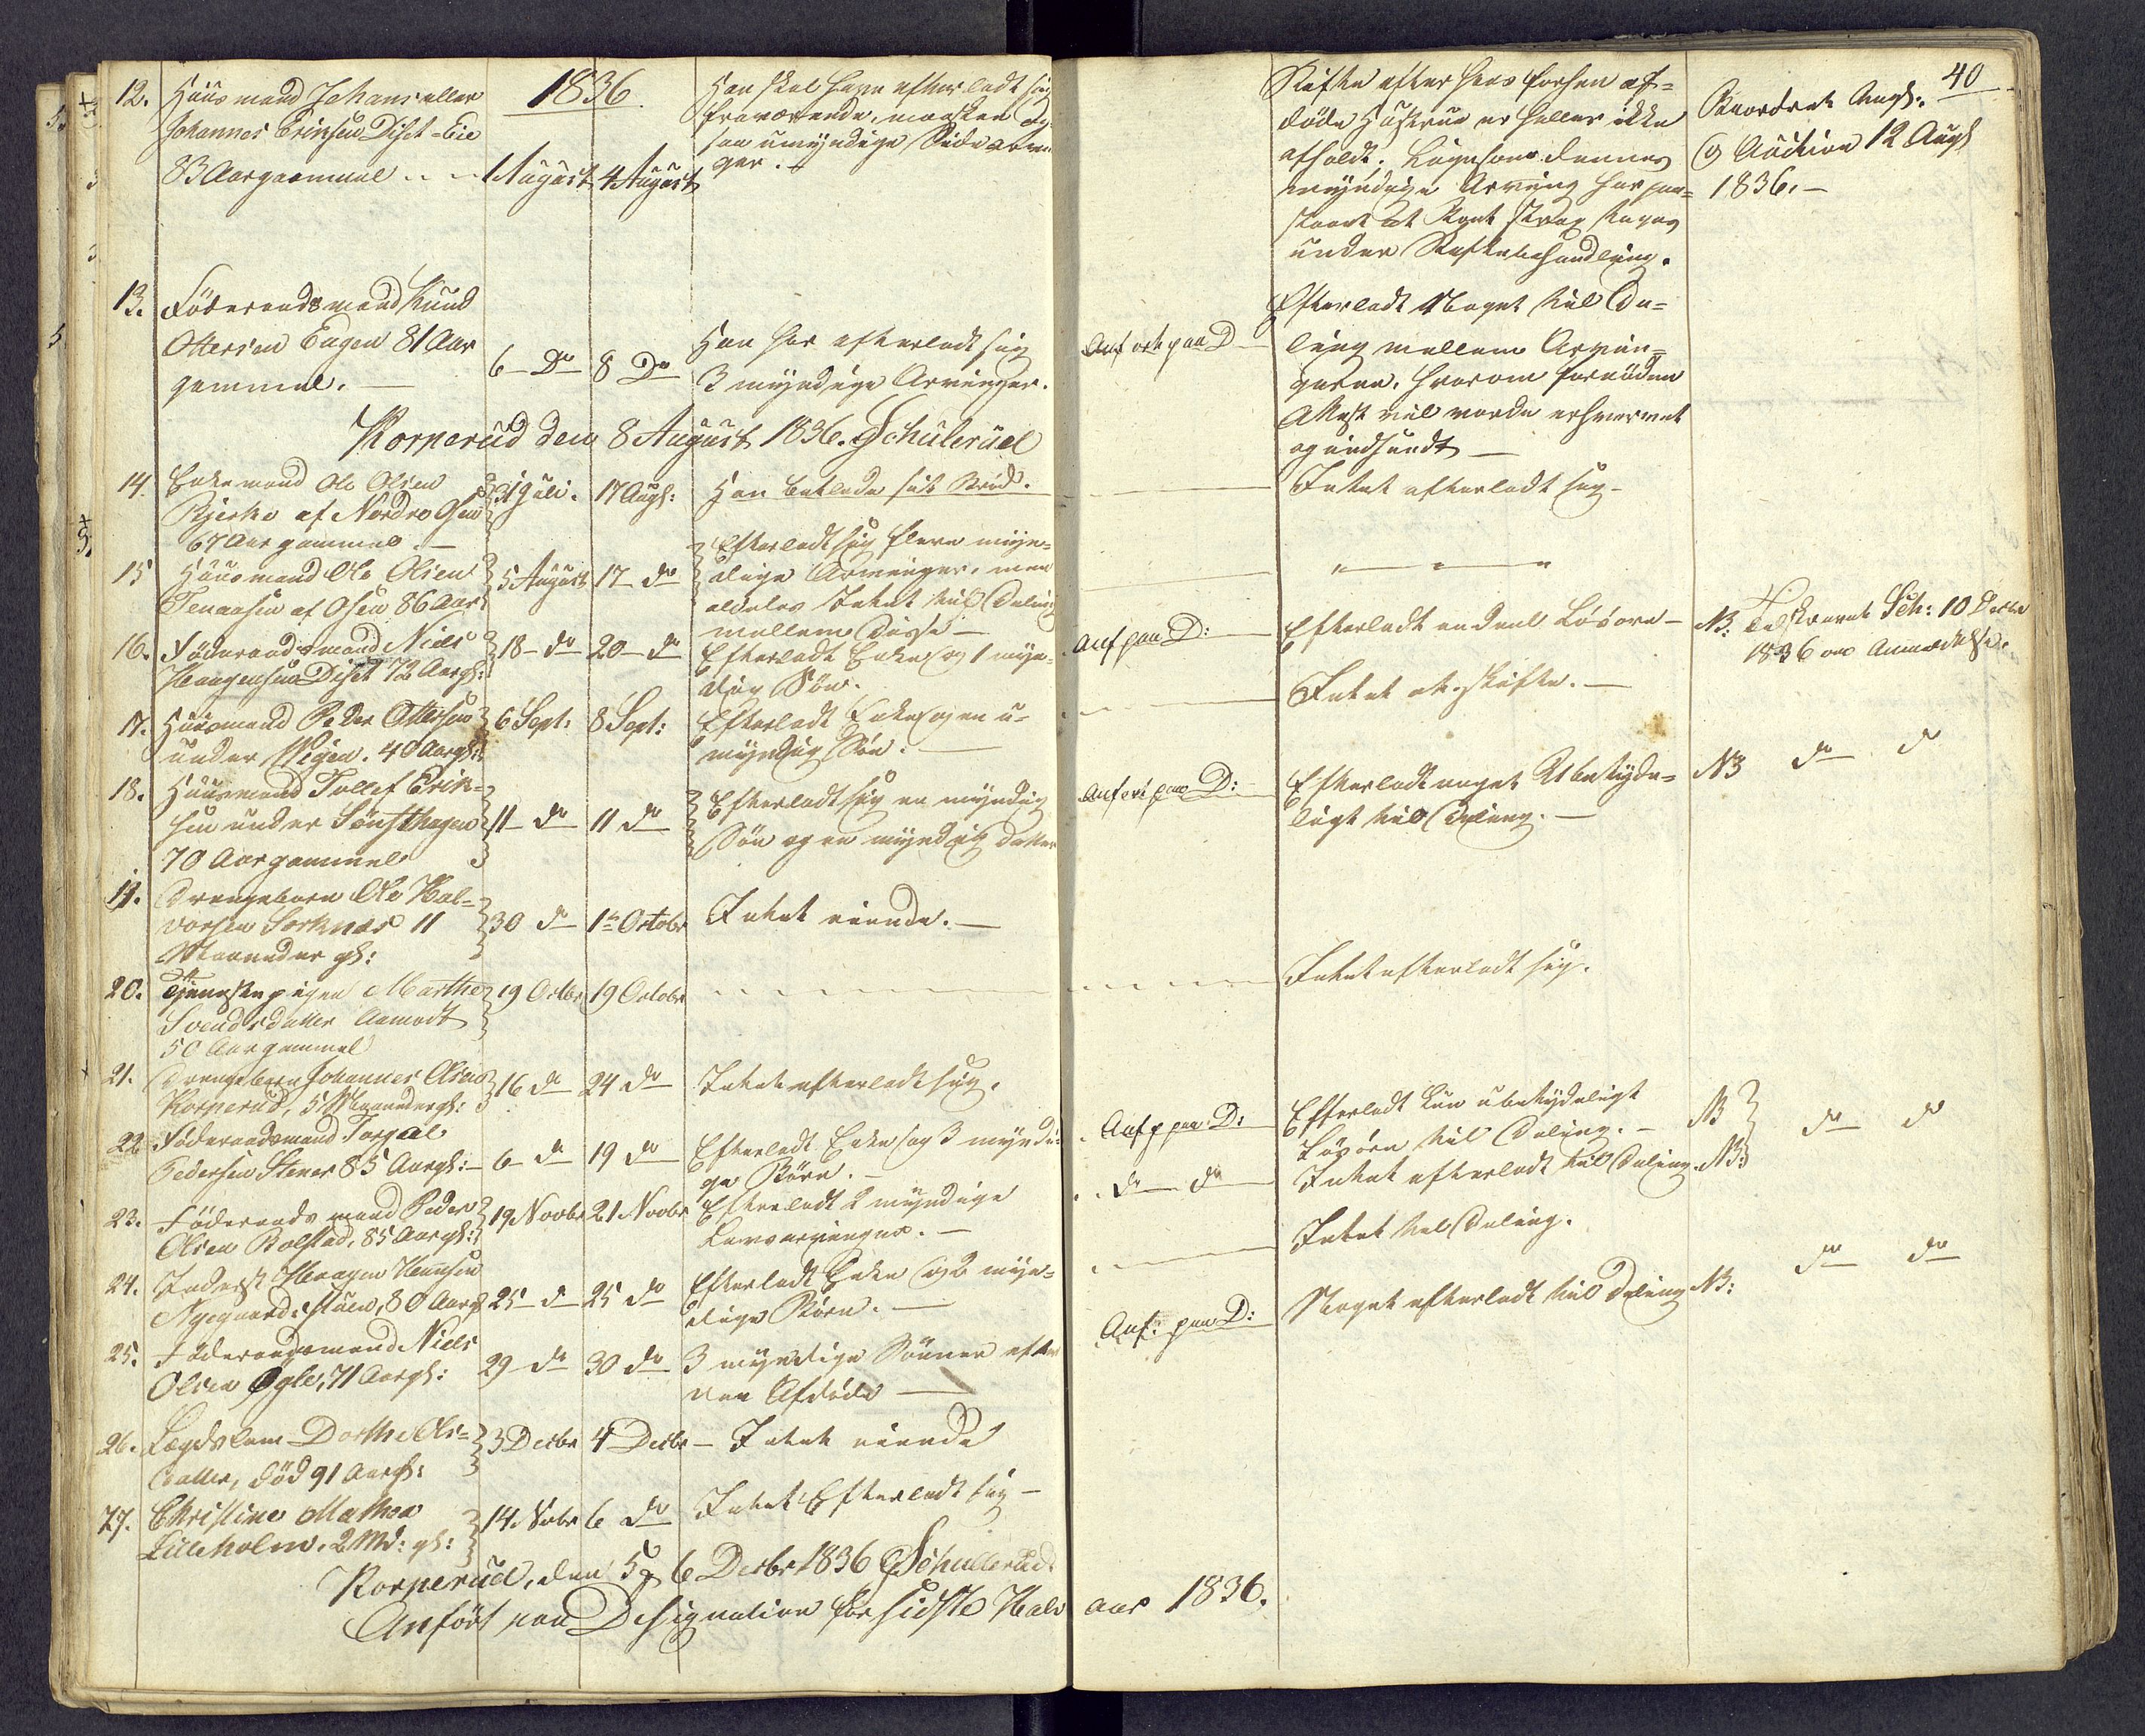 40
1836.
12. Huusmand Johans eller
Johannes Erichsen Diset-Eie
83 Aar gammel
1 August 4 August
Han skal have efterladt sig
fraværende, maaskee og-
saa umyndige Sidearvin-
ger.
Skifte efter hans forhen af-
døde Hustrue er heller ikke
afholdt.
myndige Arving har paa-
staaet at Boet strax tages
under Skiftebehandling.
Beordret Augh:
og Auction 12 Augh
1836.
13. Föderaadsmand Knud
Ottersen Eugen 81 Aar
gammel.
6 Do 8 Do
Han har efterladt sig
3 myndige Arvinger.
Anført paa D
Efterladt Noget til De-
ling mellem Arvin-
gerne, hvorom fornøden
Attest vil vorde erhvervet
og indsendt
Korperud den 8 August 1836. Schulerud
14. Enkemand Ole Olsen
Bjerke af Nordre Osen
67 Aar gammel.
31 Juli. 17 Augh:
Han betlede sit Brød.
Intet efterladt sig
15 Huusmand Ole Olsen
Tenaasen af Osen 86 Aar
5 August 17 do
Efterladt sig flere myn-
dige Arvinger, men
aldeles Intet til Deling
mellem Disse
16. Föderaadsmand Niels
Haagensen Diset 72 Aar gh:
18 do 20 do
Efterladt Enke og 1 myn-
dig Søn.
Anf paa D:
Efterladt en deel Løsøre
NB: Tilskrevet Sch: 10 Decbr
1836 om Anmeldelse.
17. Huusmand Peder Ottersen
under Wigen. 40 Aar gh:
6 Sept: 8 Sept:
Efterladt Enke og en u-
myndig Søn.
Intet at skifte.
18. Huusmand Tollef Erik-
sen under Sønsthagen
70 Aar gammel
11 do 11 do
Efterladt sig en myndig
Søn og en myndig Datter
Anført paa D:
Efterladt noget Ubetyde-
ligt til Deling.
NB do do
19. Drengebarn Ole Hal-
vorsen Sorknæs 11
Maaneder gh:
30 do 1te Octobr
Intet eiende.
20. Tjenestepigen Marthe
Svendsdatter Aamodt
50 Aar gammel
19 Octbr 19 Octobr
Intet efterladt sig.
21. Drengebarn Johannes Olsen
Korperud, 5 Maaneder gh:
16 do 24 do
Intet efterladt sig.
22 Föderaadsmand Torgal
Pedersen Stener 85 Aar gh:
6 do 19 do
Efterladt Enke og 3 myndi-
ge Børn.
Anf paa D:
Efterladt kun ubetydeligt
Løsøre til Deling. NB do do
23. Föderaads mand Peder
Olsen Bolstad, 85 Aar gh:
19 Novbr 21 Novbr
Efterladt 2 myndige
Livsarvinger.
do do
Intet efterladt til Deling. NB:
24. Inderst Haagen Hansen
Nygaardsstuen, 80 Aar gh
25 do 25 do
Efterladt Enke og 2 myn-
dige Børn.
Intet til Deling.
25. Föderaadsmand Niels
Olsen Øgle, 71 Aar gh:
29 do 30 do
3 myndige Sønner efter
den Afdøde
Anf: paa D:
Noget efterladt til Deling NB: do do
26. Lægdslem Dorthe Ols-
datter, død 91 Aar gh:
3 Decbr 4 Decbr
Intet eiende
27. Christine Mathea
Lilleholm. 2 Md: gh:
14 Novbr 6 do
Intet Efterladt sig
Korperud, den 5 og 6 Decbr 1836 Schullerud
Anført paa Designation for sidste Halv aar 1836.